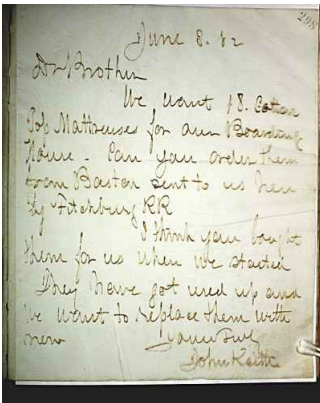 298
June 8. 82
Dr Brother
We want 18. Cotton
Top Mattresses for our Boarding
House - Can you order them
from Boston sent to us here
by Fitchburg RR
I think you bought
them for us when we started
They have got used up and
we want to replace them with
new
Yours Truly
John Keith